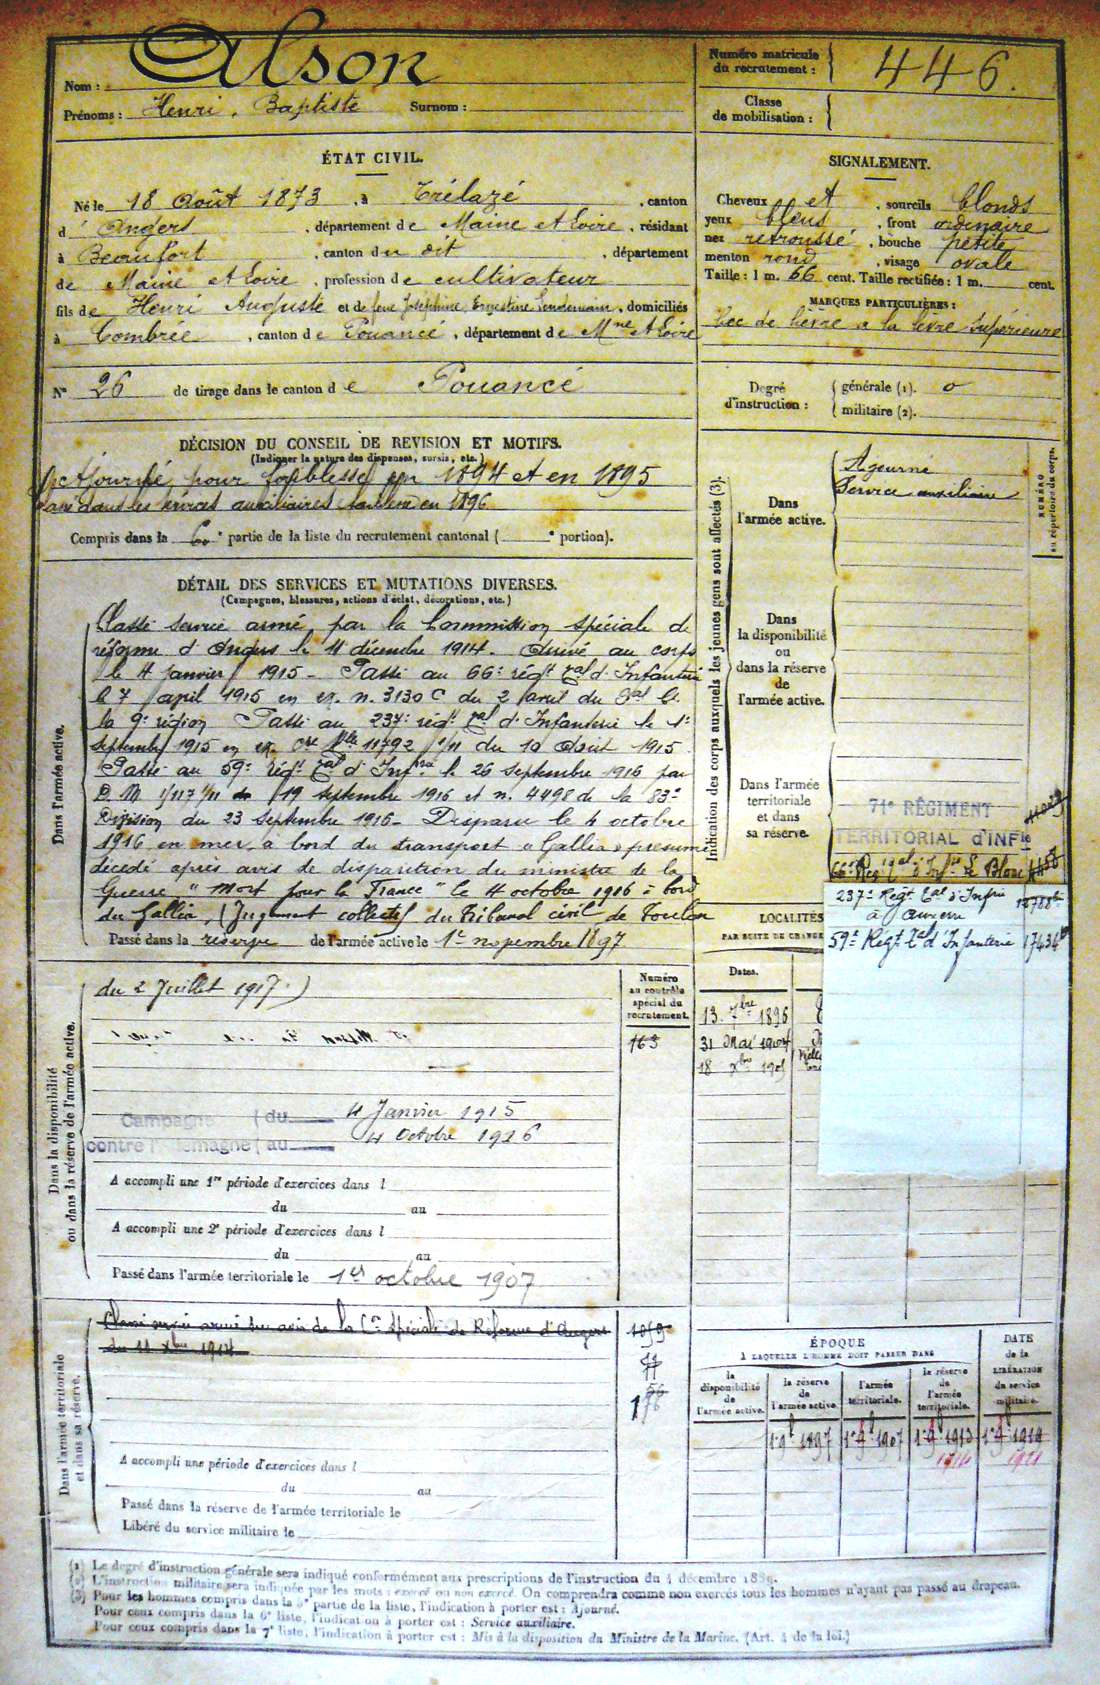 Nom : Alson
Prénoms : Henri, Baptiste Surnom :
Numéro matricule du recrutement : 446.
Classe de mobilisation :
ÉTAT CIVIL.
Né le 18 Août 1873, à Trélazé, canton
d'Angers, département de Maine et Loire, résidant
à Beaufort, canton du dit, département
de Maine et Loire, profession de cultivateur
fils de Henri Auguste et de feue Joséphine Ernestine, domiciliés
à Combrée, canton de Pouancé, département de Mne et Loire
N° 26 de tirage dans le canton de Pouancé
SIGNALEMENT.
Cheveux et, sourcils blonds
yeux bleus, front ordinaire
nez retroussé, bouche petite
menton rond, visage ovale
Taille : 1 m. 66 cent. Taille rectifiée : 1 m. cent.
MARQUES PARTICULIÈRES :
Bec de lièvre à la lèvre supérieure
Degré d'instruction : générale (1). 0
militaire (2).
DÉCISION DU CONSEIL DE REVISION ET MOTIFS.
(Indiquer la nature des dispenses, sursis, etc.)
Ajourné pour faiblesse en 1894 et en 1895
dans les services auxiliaires en 1896
Compris dans la 6e partie de la liste du recrutement cantonal ( e portion).
DÉTAIL DES SERVICES ET MUTATIONS DIVERSES.
(Campagnes, blessures, actions d'éclat, décorations, etc.)
Dans l'armée active.
Classé service armé par la Commission spéciale de
réforme d'Angers le 11 décembre 1914. Arrivé au corps
le 4 janvier 1915 - Passé au 66e régt tal d'Infanterie
le 7 april 1915 en ex. n. 3130 C du 2 avril du Gal C.
la 9e région Passé au 237e régt tal d'Infanterie le 1e
septembre 1915 en ex. Cre Mlle 11792 1/11 du 10 Août 1915.
Passé au 59e régt tal d'Infrie le 26 septembre 1916 par
D. M 1/117 1/11 du 19 septembre 1916 et n. 4498 de la 83e
Division du 23 septembre 1916 - Disparu le 4 octobre
1916 en mer, à bord du transport "Gallia" présumé
décédé après avis de disparition du ministre de la
Guerre "Mort pour la France" le 4 octobre 1916 à bord
du Gallia, (Jugement collectif du Tribunal civil de Toulon
Passé dans la réserve de l'armée active le 1er novembre 1897
Indication des corps auxquels les jeunes gens sont affectés (3).
NUMÉRO au répertoire du corps.
Dans l'armée active.
Ajourné
Service auxiliaire
Dans la disponibilité ou dans la réserve de l'armée active.
Dans l'armée territoriale et dans sa réserve.
71e RÉGIMENT
TERRITORIAL d'INFie
66e Reg tal d'Infie Le Blanc
237e Regt tal d'Infrie
à Auxerre
59e Regt tal d'Infanterie 17434
LOCALITÉS
PAR SUITE DE CHANGE
Dates.
13 7bre 1896
31 Mai 1904
Dans la disponibilité ou dans la réserve de l'armée active.
du 2 Juillet 1917.)
Numéro au contrôle spécial du recrutement.
163
Campagne contre l'Allemagne
du 4 Janvier 1915
au 4 Octobre 1916
A accompli une 1re période d'exercices dans l
du au
A accompli une 2e période d'exercices dans l
du au
Passé dans l'armée territoriale le 1er octobre 1907
Dans l'armée territoriale et dans sa réserve.
Classé service armé sur avis de la Con spéciale de Réforme d'Angers
du 11 Xbre 1914
A accompli une période d'exercices dans l
du au
Passé dans la réserve de l'armée territoriale le
Libéré du service militaire le
ÉPOQUE
À LAQUELLE L'HOMME DOIT PASSER DANS
la disponibilité de l'armée active.
la réserve de l'armée active.
l'armée territoriale.
la réserve de l'armée territoriale.
DATE de la LIBÉRATION du service militaire.
(1) Le degré d'instruction générale sera indiqué conformément aux prescriptions de l'instruction du 4 décembre 1889.
(2) L'instruction militaire sera indiquée par les mots : exercé ou non exercé. On comprendra comme non exercés tous les hommes n'ayant pas passé au drapeau.
(3) Pour les hommes compris dans la 5e partie de la liste, l'indication à porter est : Ajourné.
Pour ceux compris dans la 6e liste, l'indication à porter est : Service auxiliaire.
Pour ceux compris dans la 7e liste, l'indication à porter est : Mis à la disposition du Ministre de la Marine. (Art. 4 de la loi.)